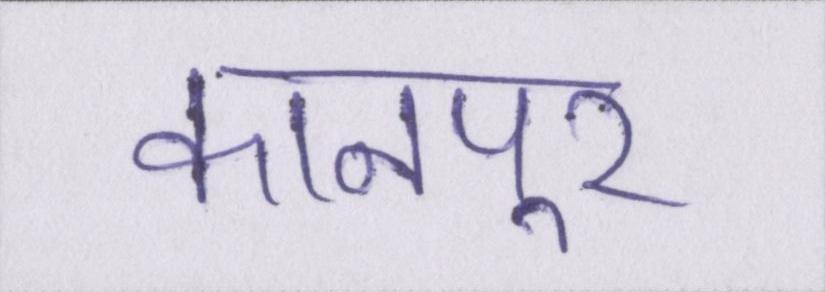 कानपूर